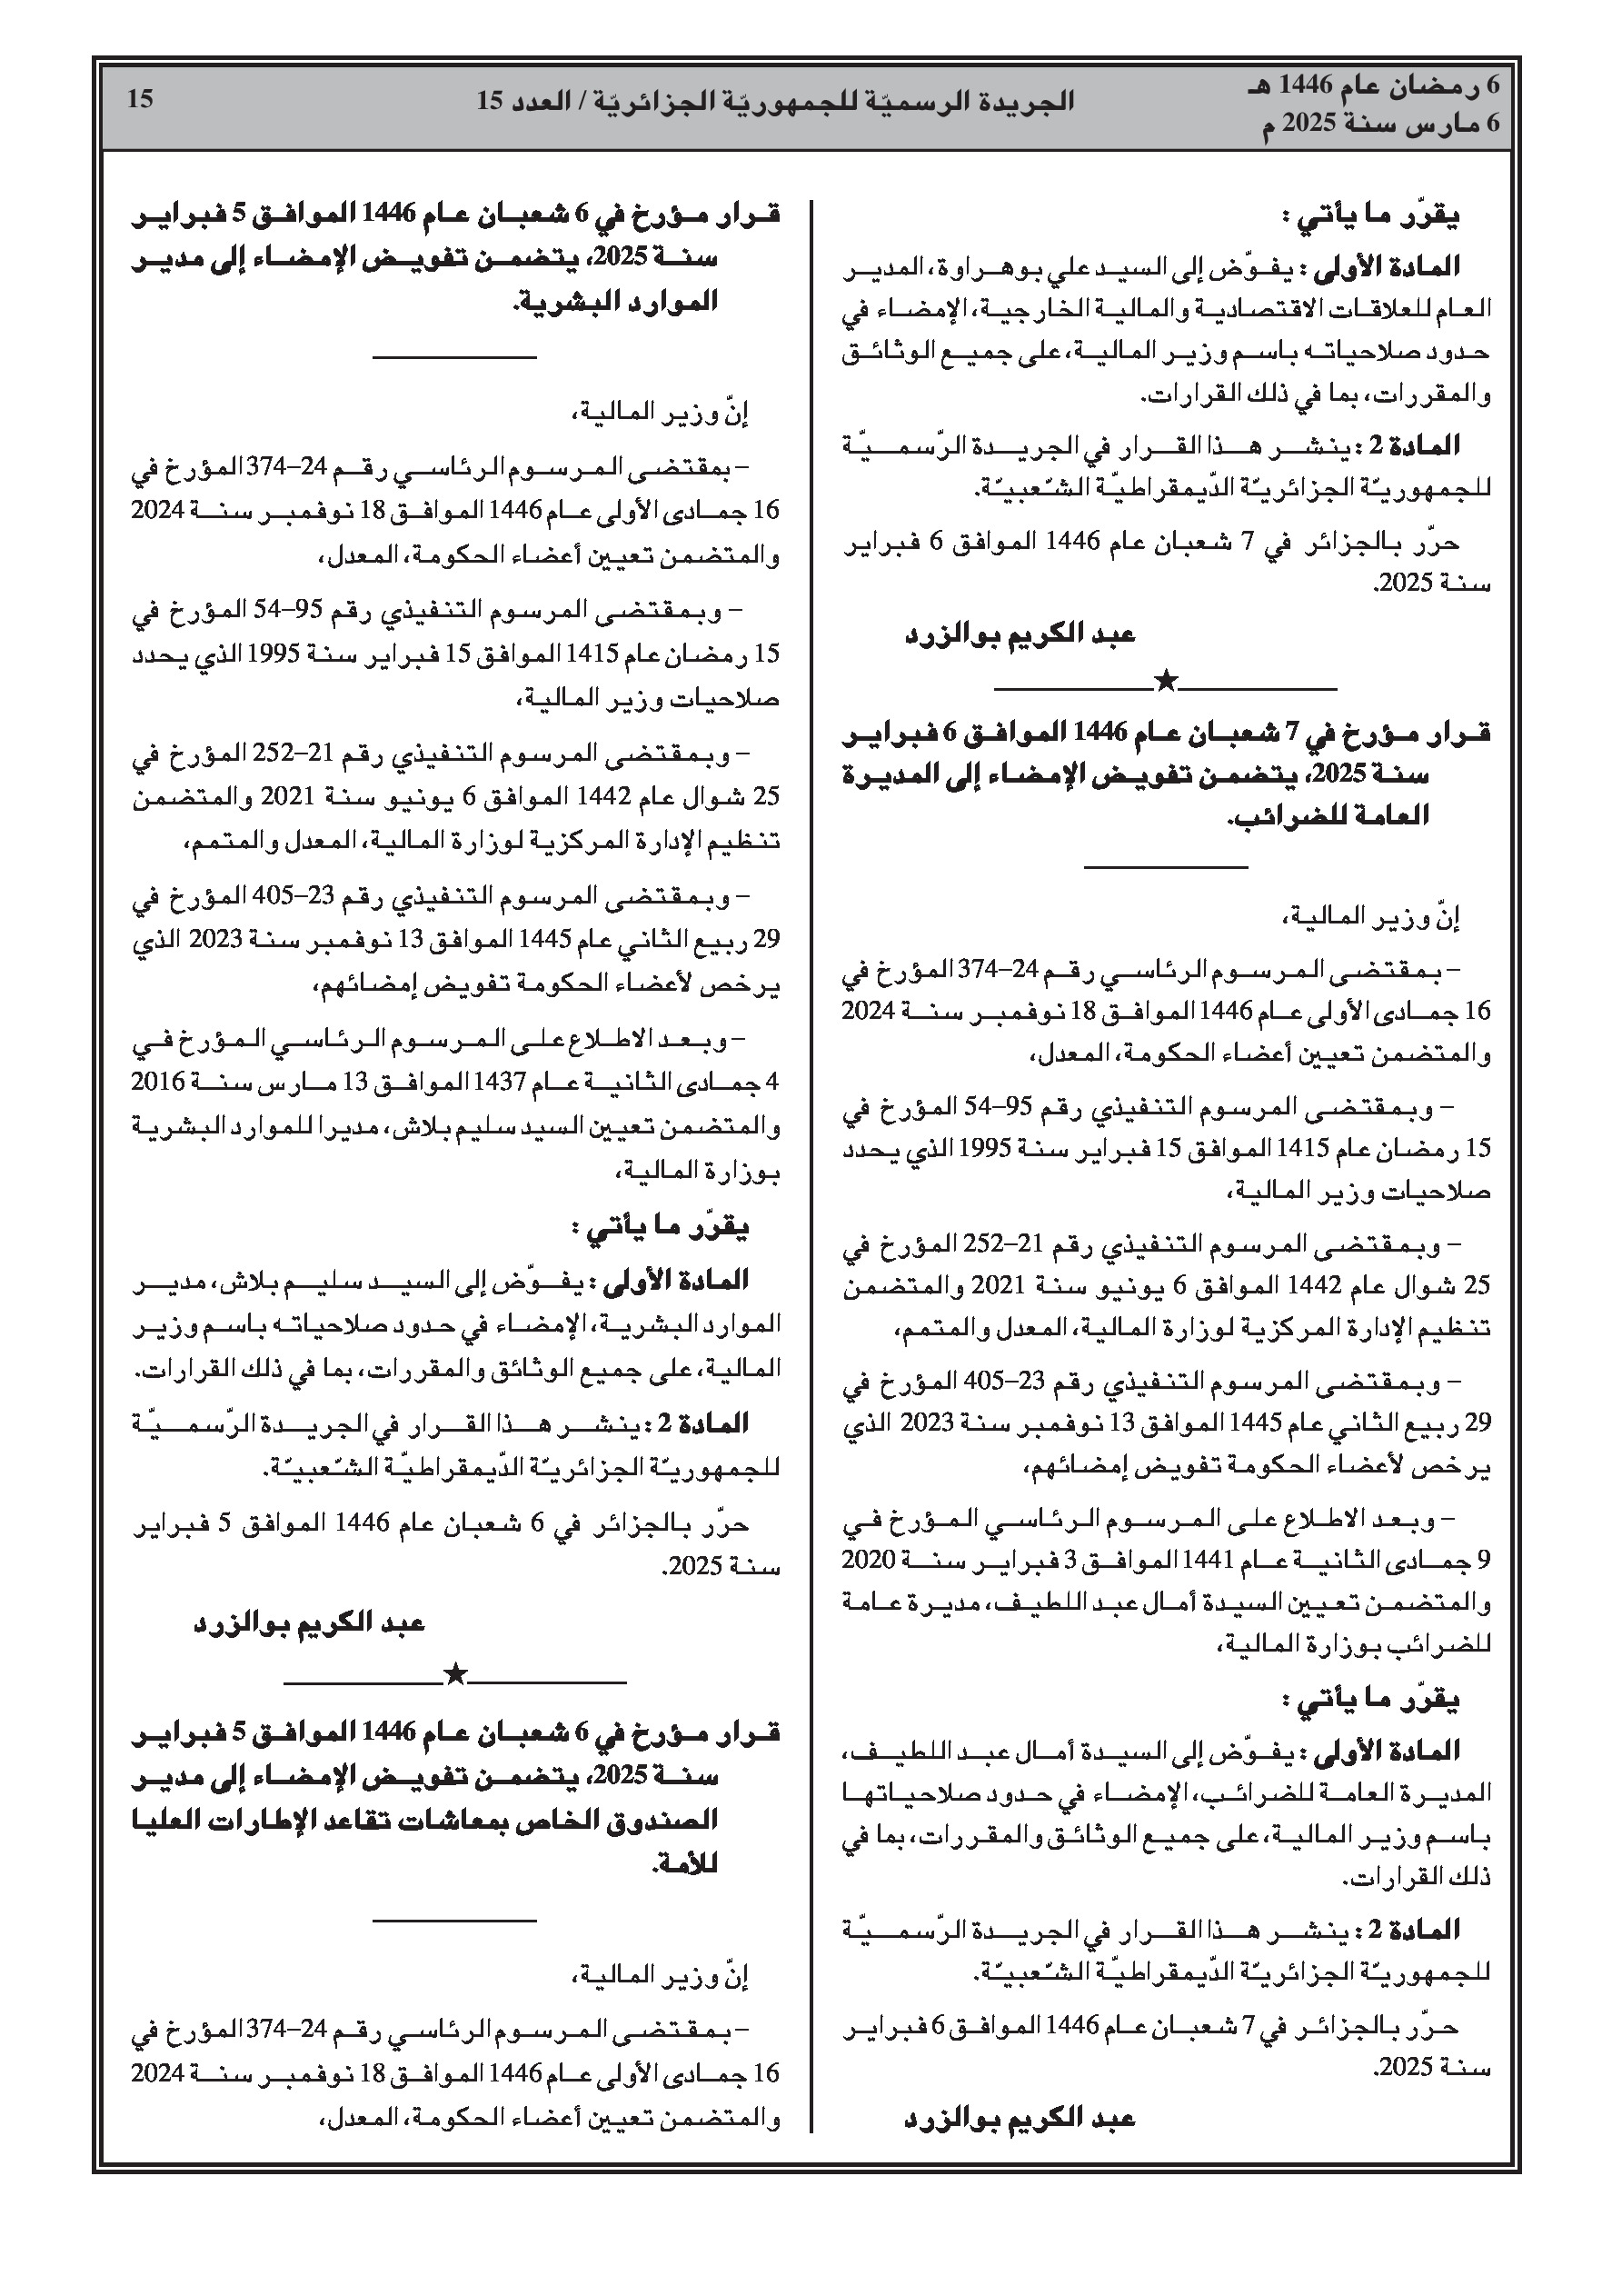 6 رمضان عام 1446 هـ
6 مارس سنة 2025 م
الجريدة الرسميّة للجمهوريّة الجزائريّة / العدد 15
15
يقرّر ما يأتي :
المادة الأولى : يفوّض إلى السيد علي بوهراوة، المدير
العام للعلاقات الاقتصادية والمالية الخارجية، الإمضاء في
حدود صلاحياته باسم وزير المالية، على جميع الوثائق
والمقررات، بما في ذلك القرارات.
المادة 2 : ينشر هذا القرار في الجريدة الرّسميّة
للجمهوريّة الجزائريّة الدّيمقراطيّة الشّعبيّة.
حرّر بالجزائر في 7 شعبان عام 1446 الموافق 6 فبراير
سنة 2025.
عبد الكريم بوالزرد
قرار مؤرخ في 7 شعبان عام 1446 الموافق 6 فبراير
سنة 2025، يتضمن تفويض الإمضاء إلى المديرة
العامة للضرائب.
إنّ وزير المالية،
– بمقتضى المرسوم الرئاسي رقم 24–374 المؤرخ في
16 جمادى الأولى عام 1446 الموافق 18 نوفمبر سنة 2024
والمتضمن تعيين أعضاء الحكومة، المعدل،
– وبمقتضى المرسوم التنفيذي رقم 95–54 المؤرخ في
15 رمضان عام 1415 الموافق 15 فبراير سنة 1995 الذي يحدد
صلاحيات وزير المالية،
– وبمقتضى المرسوم التنفيذي رقم 21–252 المؤرخ في
25 شوال عام 1442 الموافق 6 يونيو سنة 2021 والمتضمن
تنظيم الإدارة المركزية لوزارة المالية، المعدل والمتمم،
– وبمقتضى المرسوم التنفيذي رقم 23–405 المؤرخ في
29 ربيع الثاني عام 1445 الموافق 13 نوفمبر سنة 2023 الذي
يرخص لأعضاء الحكومة تفويض إمضائهم،
– وبعد الاطلاع على المرسوم الرئاسي المؤرخ في
9 جمادى الثانية عام 1441 الموافق 3 فبراير سنة 2020
والمتضمن تعيين السيدة أمال عبد اللطيف، مديرة عامة
للضرائب بوزارة المالية،
يقرّر ما يأتي :
المادة الأولى : يفوّض إلى السيدة أمال عبد اللطيف،
المديرة العامة للضرائب، الإمضاء في حدود صلاحياتها
باسم وزير المالية، على جميع الوثائق والمقررات، بما في
ذلك القرارات.
المادة 2 : ينشر هذا القرار في الجريدة الرّسميّة
للجمهوريّة الجزائريّة الدّيمقراطيّة الشّعبيّة.
حرّر بالجزائر في 7 شعبان عام 1446 الموافق 6 فبراير
سنة 2025.
عبد الكريم بوالزرد
قرار مؤرخ في 6 شعبان عام 1446 الموافق 5 فبراير
سنة 2025، يتضمن تفويض الإمضاء إلى مدير
الموارد البشرية.
إنّ وزير المالية،
– بمقتضى المرسوم الرئاسي رقم 24–374 المؤرخ في
16 جمادى الأولى عام 1446 الموافق 18 نوفمبر سنة 2024
والمتضمن تعيين أعضاء الحكومة، المعدل،
– وبمقتضى المرسوم التنفيذي رقم 95–54 المؤرخ في
15 رمضان عام 1415 الموافق 15 فبراير سنة 1995 الذي يحدد
صلاحيات وزير المالية،
– وبمقتضى المرسوم التنفيذي رقم 21–252 المؤرخ في
25 شوال عام 1442 الموافق 6 يونيو سنة 2021 والمتضمن
تنظيم الإدارة المركزية لوزارة المالية، المعدل والمتمم،
– وبمقتضى المرسوم التنفيذي رقم 23–405 المؤرخ في
29 ربيع الثاني عام 1445 الموافق 13 نوفمبر سنة 2023 الذي
يرخص لأعضاء الحكومة تفويض إمضائهم،
– وبعد الاطلاع على المرسوم الرئاسي المؤرخ في
4 جمادى الثانية عام 1437 الموافق 13 مارس سنة 2016
والمتضمن تعيين السيد سليم بلاش، مديرا للموارد البشرية
بوزارة المالية،
يقرّر ما يأتي :
المادة الأولى : يفوّض إلى السيد سليم بلاش، مدير
الموارد البشرية، الإمضاء في حدود صلاحياته باسم وزير
المالية، على جميع الوثائق والمقررات، بما في ذلك القرارات.
المادة 2 : ينشر هذا القرار في الجريدة الرّسميّة
للجمهوريّة الجزائريّة الدّيمقراطيّة الشّعبيّة.
حرّر بالجزائر في 6 شعبان عام 1446 الموافق 5 فبراير
سنة 2025.
عبد الكريم بوالزرد
قرار مؤرخ في 6 شعبان عام 1446 الموافق 5 فبراير
سنة 2025، يتضمن تفويض الإمضاء إلى مدير
الصندوق الخاص بمعاشات تقاعد الإطارات العليا
للأمة.
إنّ وزير المالية،
– بمقتضى المرسوم الرئاسي رقم 24–374 المؤرخ في
16 جمادى الأولى عام 1446 الموافق 18 نوفمبر سنة 2024
والمتضمن تعيين أعضاء الحكومة، المعدل،